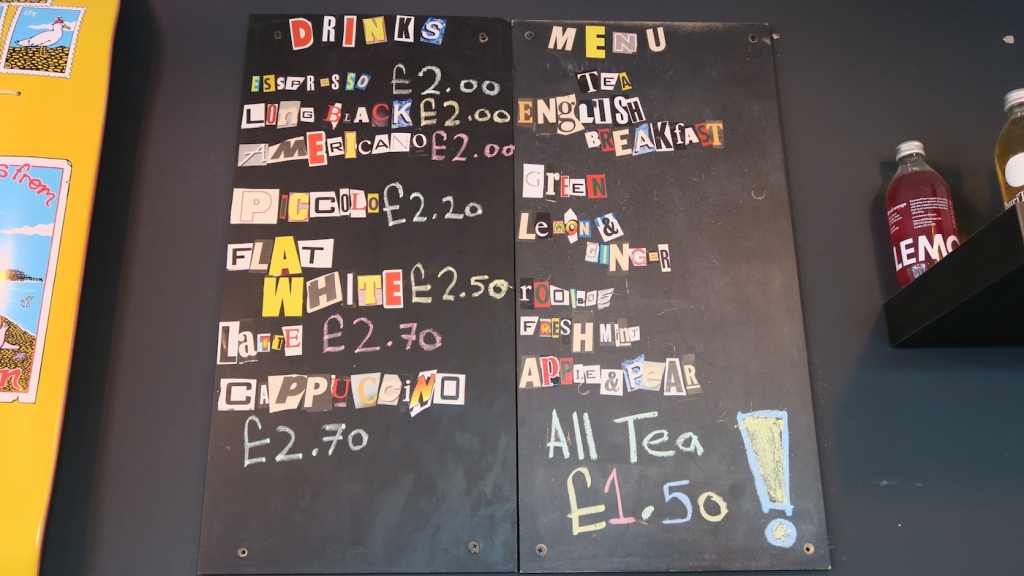 DRINKS
ESSPRESSO £2.00
LONG BLACK £2.00
AMERICANO £2.00
PICCOLO £2.20
FLAT
WHITE £2.50
LaTTE £2.70
CAPPUCCiNO
£2.70
MENU
TEA
ENGLISH
BREAKfAST
GREEN
LeMON &
GINGER
rOOIBOS
FRESH MINT
APPLE & PEAR
All Tea
£1.50 !
s from
LEMO